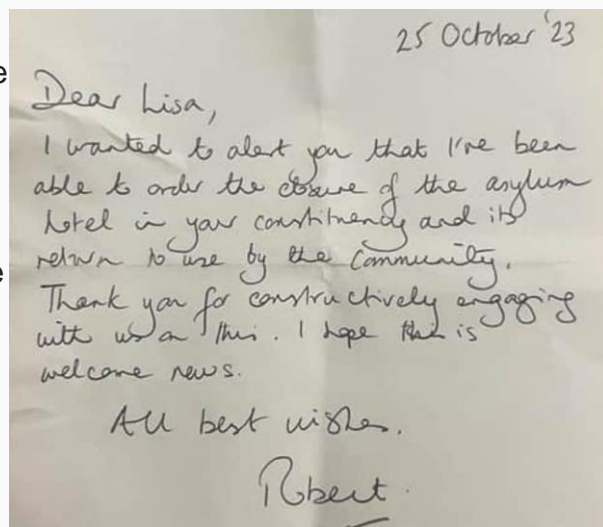 25 October '23
e
Dear Lisa,
I wanted to alert you that I've been
able to order the closure of the asylum
hotel in your constituency and its
return to use by the community.
e
Thank you for constructively engaging
with us on this. I hope this is
welcome news.
All best wishes.
Robert.